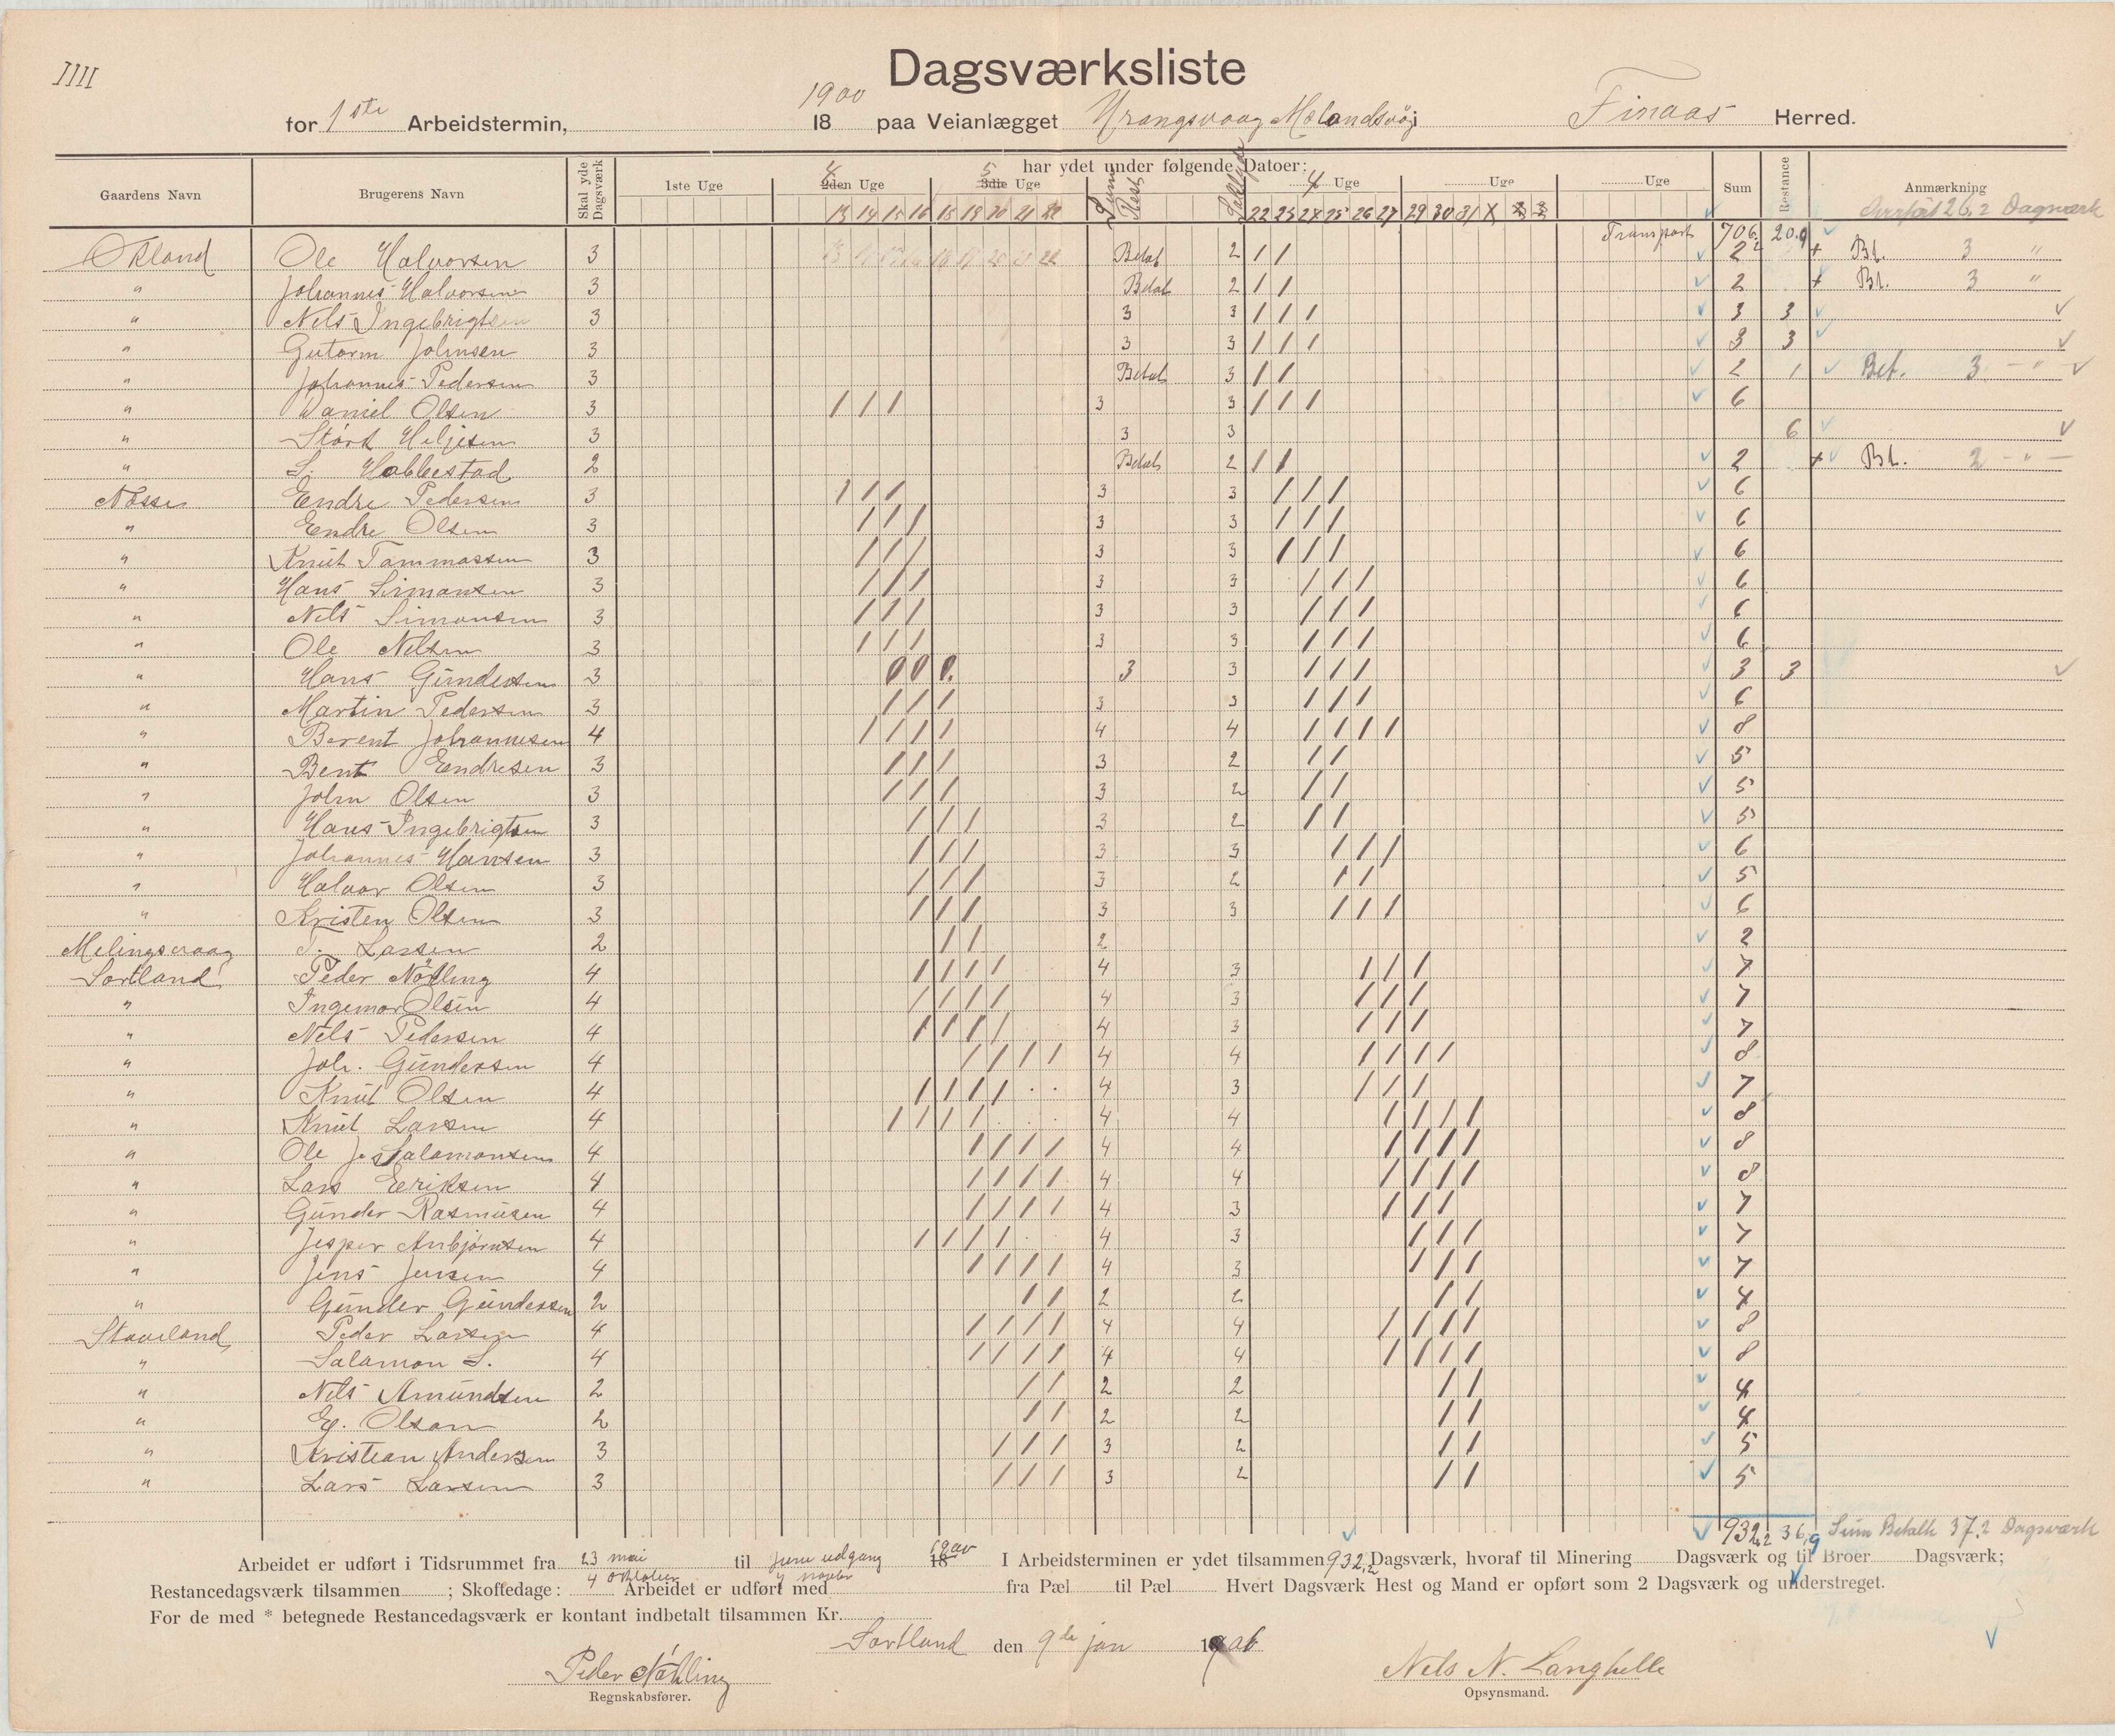 IIII
Dagsværksliste
for 1ste Arbeidstermin, 1900 18 paa Veianlægget Urangsvaag Mælandsvåg Finaas Herred.
Gaardens Navn Brugerens Navn Skal yde Dagsværk har ydet under følgende Datoer: Sum Restance Anmærkning
1ste Uge 2den Uge 3die Uge Sum Rest 4 Uge Uge Uge
13 14 15 16 18 19 20 21 22 22 23 24 25 26 27 29 30 31 X
Transport 706,2 20,9 Dagsværk
Økland Ole Halvorsen 3 Betalt 2 / / 2 + Bt. 3 "
" Johannes Halvorsen 3 Betalt 2 / / 2 + Bt. 3 "
" Nels Ingebrigtsen 3 3 3 / / / 3 3
" Gutorm Johnsen 3 3 3 / / / 3 3
" Johannes Pedersen 3 Betalt 3 / / 2 1 Bet. 3 "
" Daniel Olsen 3 / / / 3 3 / / / 6
" Størk Heljesen 3 3 3 6
" S. Habbestad 2 Betalt 2 / / 2 + Bt. 2 "
Nåsse Endre Pedersen 3 / / / 3 3 / / / 6
" Endre Olsen 3 / / / 3 3 / / / 6
" Knut Tammassen 3 / / / 3 3 / / / 6
" Hans Simonsen 3 / / / 3 3 / / / 6
" Nels Simonsen 3 / / / 3 3 / / / 6
" Ole Nelsen 3 / / / 3 3 / / / 6
" Hans Gundersen 3 0 0 0 3 3 / / / 3 3
" Martin Pedersen 3 / / / 3 3 / / / 6
" Berent Johannesen 4 / / / / 4 4 / / / / 8
" Bent Endresen 3 / / / 3 2 / / 5
" John Olsen 3 / / / 3 2 / / 5
" Hans Ingebrigtsen 3 / / / 3 2 / / 5
" Johannes Hansen 3 / / / 3 3 / / / 6
" Halvor Olsen 3 / / / 3 2 / / 5
" Kristen Olsen 3 / / / 3 3 / / / 6
Melingsvaag T. Larsen 2 / / 2 2
Sortland Peder Nøkling 4 / / / / 4 3 / / / 7
" Ingemar Olsen 4 / / / / 4 3 / / / 7
" Nels Pedersen 4 / / / / 4 3 / / / 7
" Joh. Gundersen 4 / / / / 4 4 / / / / 8
" Knut Olsen 4 / / / / 4 3 / / / 7
" Knut Larsen 4 / / / / 4 4 / / / / 8
" Ole J. Salamonsen 4 / / / / 4 4 / / / / 8
" Lars Eriksen 4 / / / / 4 4 / / / / 8
" Gunder Rasmusen 4 / / / / 4 3 / / / 7
" Jesper Anbjørnsen 4 / / / / 4 3 / / / 7
" Jens Jensen 4 / / / / 4 3 / / / 7
" Gunder Gundersen 2 / / 2 2 / / 4
Staveland Peder Larsen 4 / / / / 4 4 / / / / 8
" Salamon S. 4 / / / / 4 4 / / / / 8
" Nels Amundsen 2 / / 2 2 / / 4
" Eg. Olson 2 / / 2 2 / / 4
" Kristian Andersen 3 / / / 3 2 / / 5
" Lars Larsen 3 / / / 3 2 / / 5
932,2 36,9 Sum Betalt 37,2 Dagsværk
Arbeidet er udført i Tidsrummet fra 23 mai til Juni udgang 1900 18 I Arbeidsterminen er ydet tilsammen 932,2 Dagsværk, hvoraf til Minering Dagsværk og til Broer Dagsværk;
4 oktober 4 novbr
Restancedagsværk tilsammen ; Skoffedage: Arbeidet er udført med fra Pæl til Pæl Hvert Dagsværk Hest og Mand er opført som 2 Dagsværk og understreget.
For de med * betegnede Restancedagsværk er kontant indbetalt tilsammen Kr.
Sortland den 9de jan
Peder Nøkling Nels N. Langhelle
Regnskabsfører. Opsynsmand.